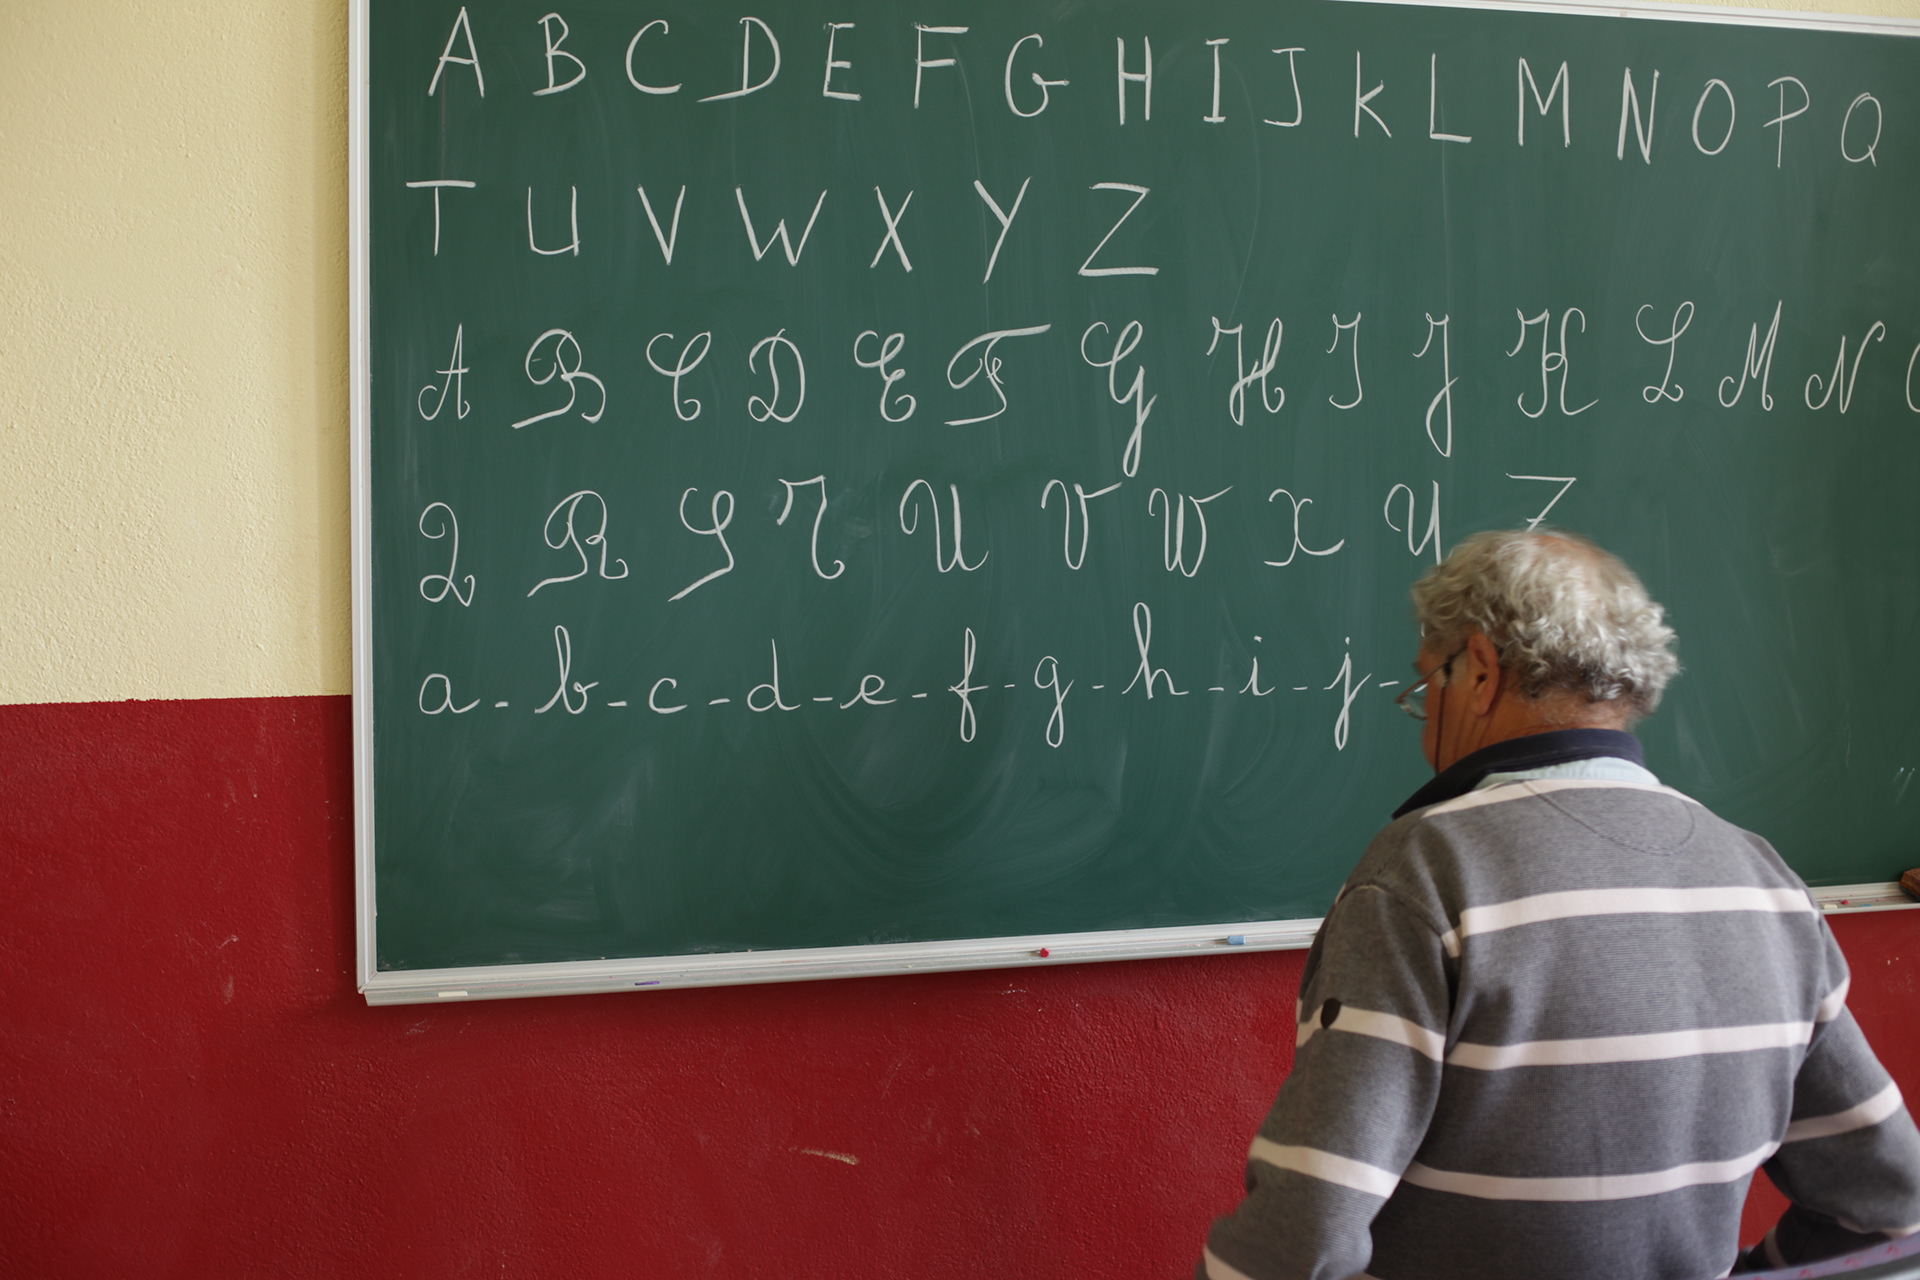 A B C D E F G H I J K L M N O P Q
T U V W X Y Z
A B C D E F G H I J K L M N
Q R S T U V W X Y Z
a - b - c - d - e - f - g - h - i - j -